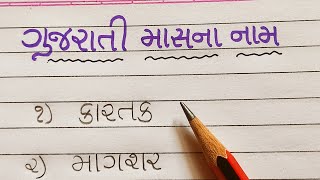 ગુજરાતી માસના નામ
૧) કારતક
૨) માગશર